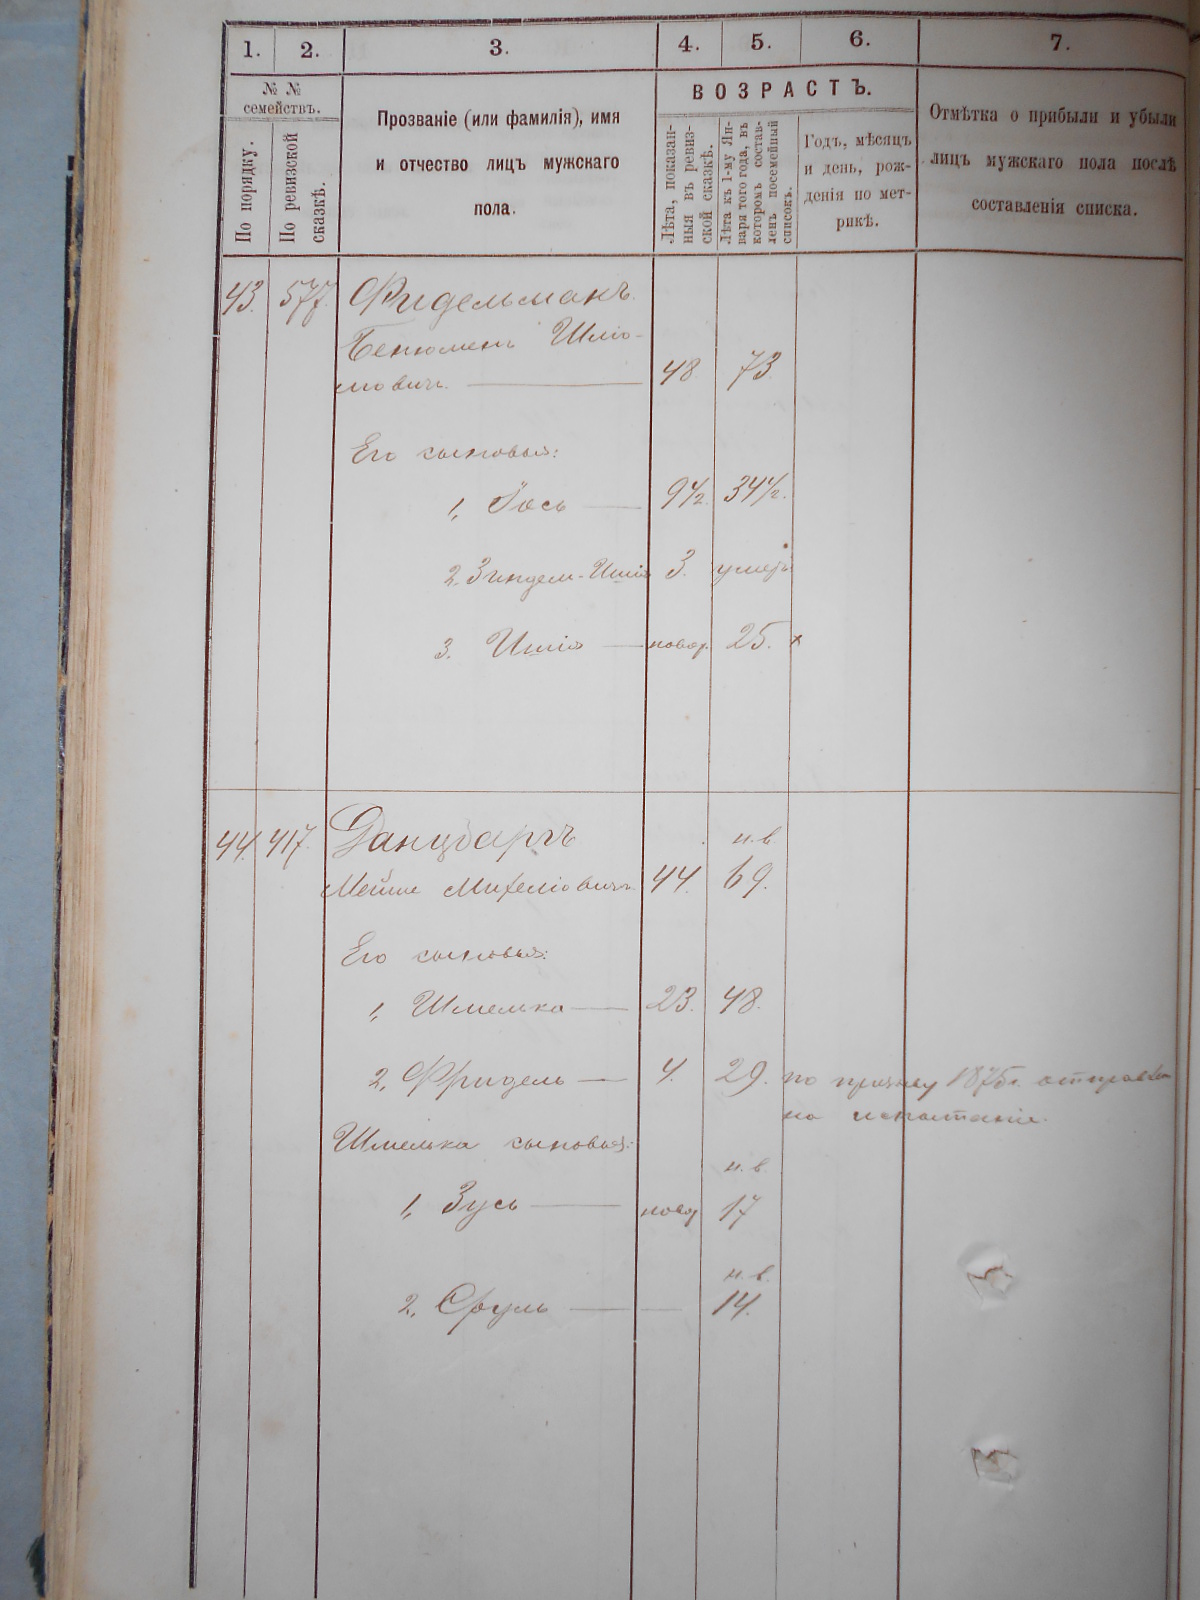 1. 2. 3. 4. 5. 6. 7.
№ №
семействъ.
По порядку.
По ревизской
сказкѣ.
Прозваніе (или фамилія), имя
и отчество лицъ мужскаго
пола.
ВОЗРАСТЪ.
Лѣта, показан-
ныя въ ревиз-
ской сказкѣ.
Лѣта къ 1-му Ян-
варя того года, въ
которомъ состав-
ленъ посемейный
списокъ.
Годъ, мѣсяцъ
и день, рож-
денія по мет-
рикѣ.
Отмѣтка о прибыли и убыли
лицъ мужскаго пола послѣ
составленія списка.
43. 577. Фидельманъ.
Бенюменъ Шліо-
мовичъ. 48. 73.
Его сыновья:
1, Іось 9½. 34½.
2. Зиндель-Шлiо 3. умеръ
3. Шліо новор. 25. x
44. 417. Данцбаргъ н. в.
Мейше Михеліовичъ 44. 69.
Его сыновья:
1, Шмелка 23. 48.
2, Фридель 4. 29. по призыву 1875г. отправлен
на испытаніе.
Шмелька сыновья:
н. в.
1, Зусь новор 17
н. в.
2, Сруль 14.